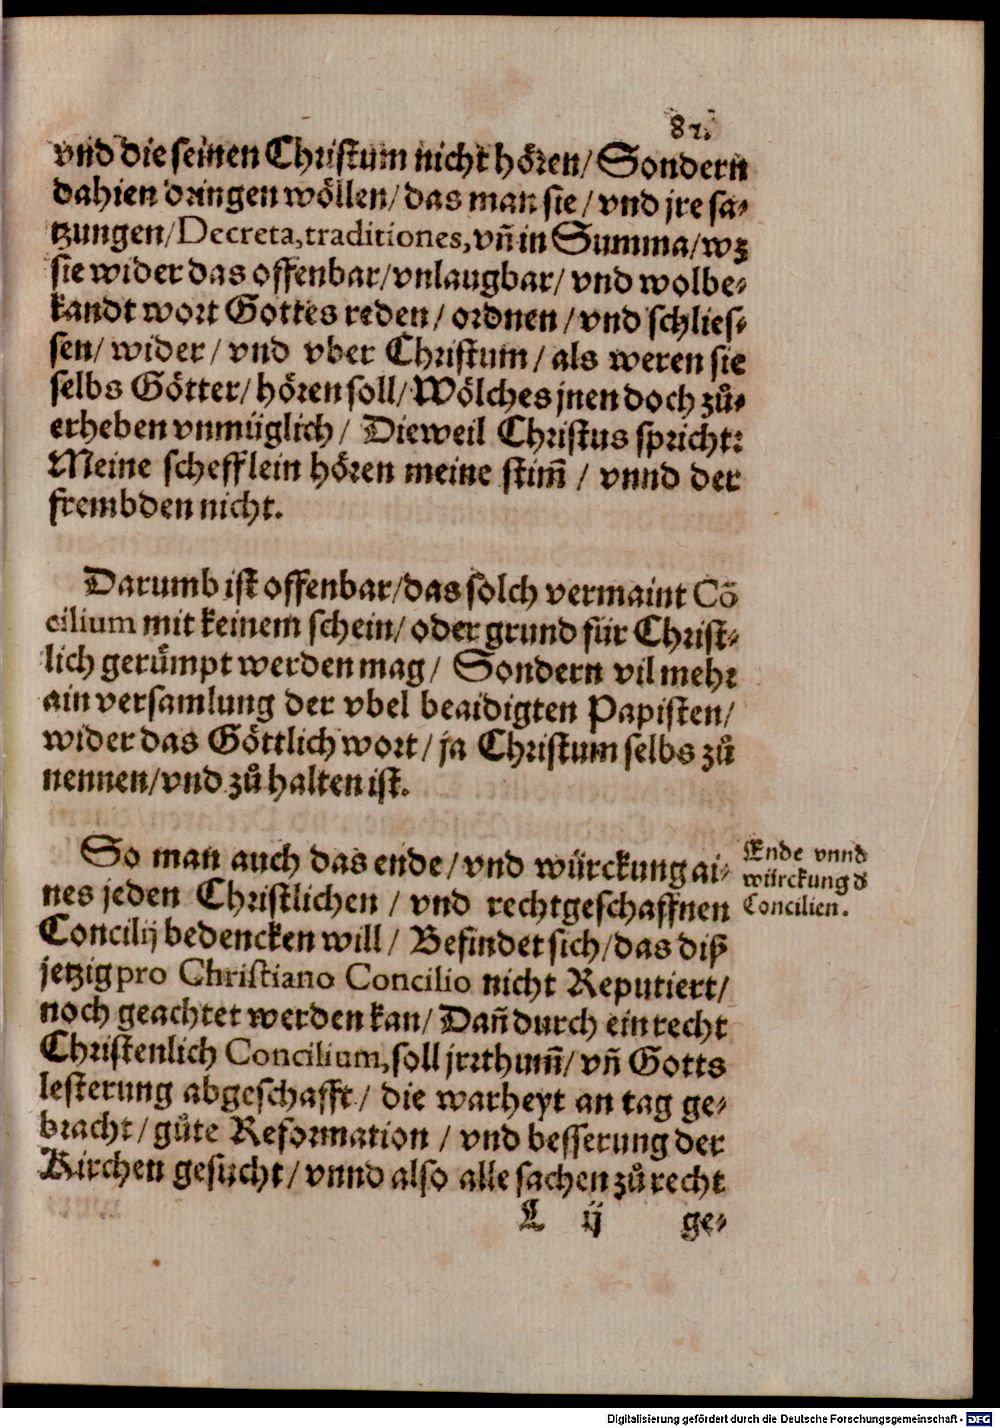 82.
vnd die seinen Christum nicht hören/ Sondern
dahien dringen wöllen/ das man sie/ vnd jre sa-
tzungen/ Decreta, traditiones, vñ in Summa/ wz
sie wider das offenbar/ vnlaugbar/ vnd wolbe-
kandt wort Gottes reden/ ordnen/ vnd schlies-
sen/ wider/ vnd vber Christum/ als weren sie
selbs Götter/ hören soll/ Wölches jnen doch zů-
erheben vnmüglich/ Dieweil Christus spricht:
Meine schefflein hören meine stim̃/ vnnd der
frembden nicht.
Darumb ist offenbar/ das solch vermaint Cõ
cilium mit keinem schein/ oder grund für Christ-
lich gerůmpt werden mag/ Sondern vil mehr
ain versamlung der vbel beaidigten Papisten/
wider das Göttlich wort/ ja Christum selbs zů
nennen/ vnd zů halten ist.
So man auch das ende/ vnd würckung ai-
nes jeden Christlichen/ vnd rechtgeschaffnen
Concilij bedencken will/ Befindet sich/ das diß
jetzig pro Christiano Concilio nicht Reputiert/
noch geachtet werden kan/ Dañ durch ein recht
Christenlich Concilium, soll jrrthum̃/ vñ Gotts
lesterung abgeschafft/ die warheyt an tag ge-
bracht/ gůte Reformation/ vnd besserung der
Kirchen gesucht/ vnnd also alle sachen zů recht
L ij ge-
Ende vnnd
würckung d
Concilien.
Digitalisierung gefördert durch die Deutsche Forschungsgemeinschaft - DFG